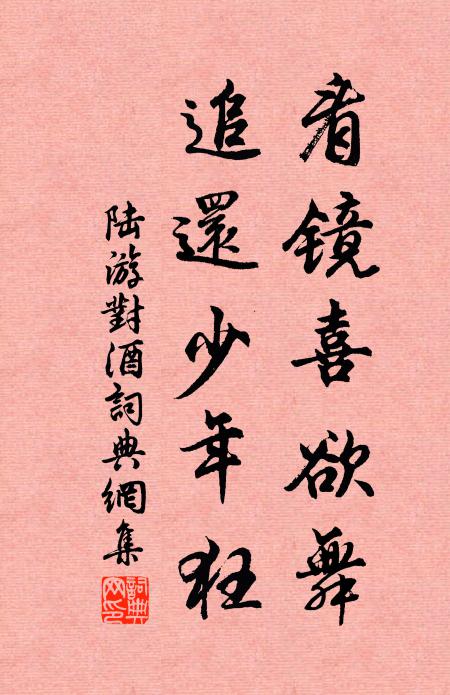 看鏡喜欲舞
追還少年狂
陸游對酒詞典網集
詞典網印